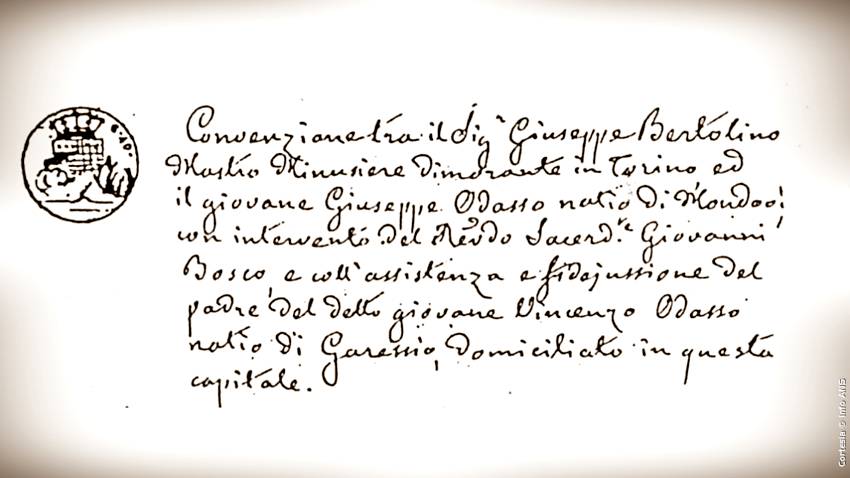 6.40.
Convenzione tra il Sig.r Giuseppe Bertolino
Mastro Minusiere dimorante in Torino ed
il giovane Giuseppe Odasso natio di Mondovì
con intervento del Rev.do Sacerd.te Giovanni
Bosco, e coll'assistenza e fidejussione del
padre del detto giovane Vincenzo Odasso
natio di Garessio, domiciliato in questa
capitale.
Cortesia © Info ANS